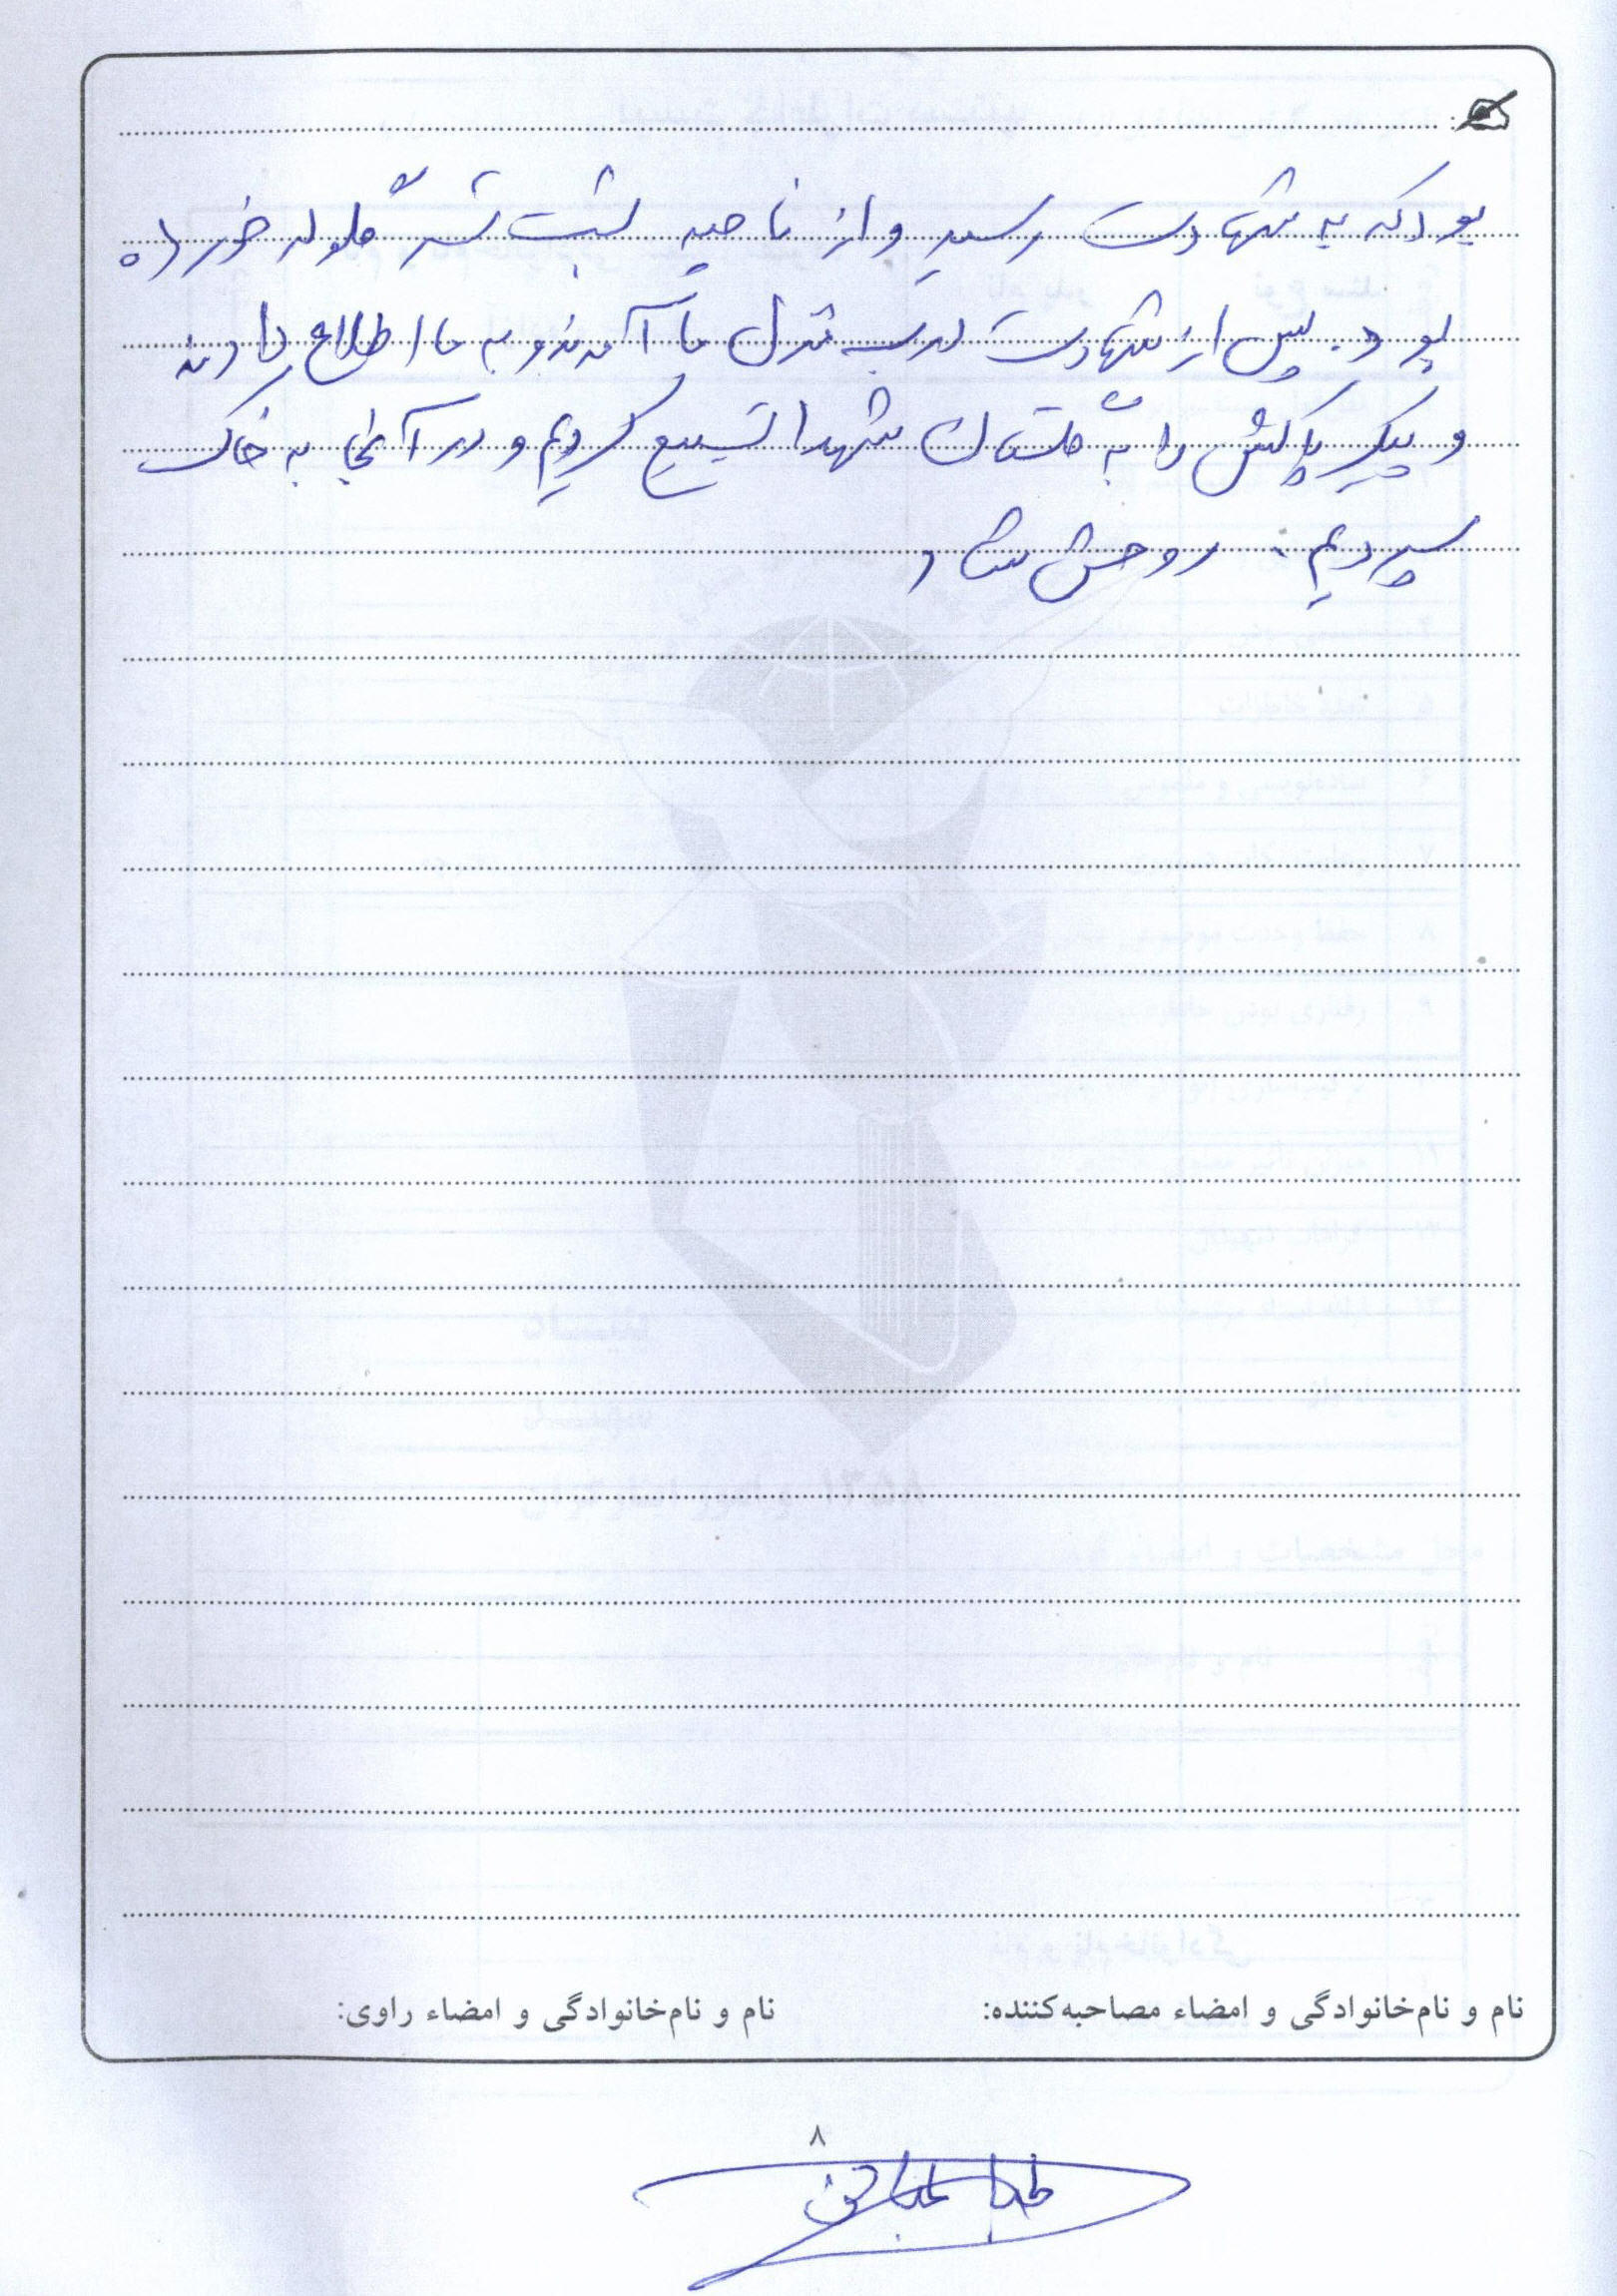 بود که به شهادت رسید و از ناحیه پشت تیر گلوله خورده
بود. پس از شهادت درب منزل ما آمدند و به ما اطلاع دادند
و پیکر پاکش را به گلستان شهدا تشییع کردیم و در آنجا به خاک
سپردیم. روحش شاد
نام و نام‌خانوادگی و امضاء مصاحبه‌کننده: نام و نام‌خانوادگی و امضاء راوی:
۸